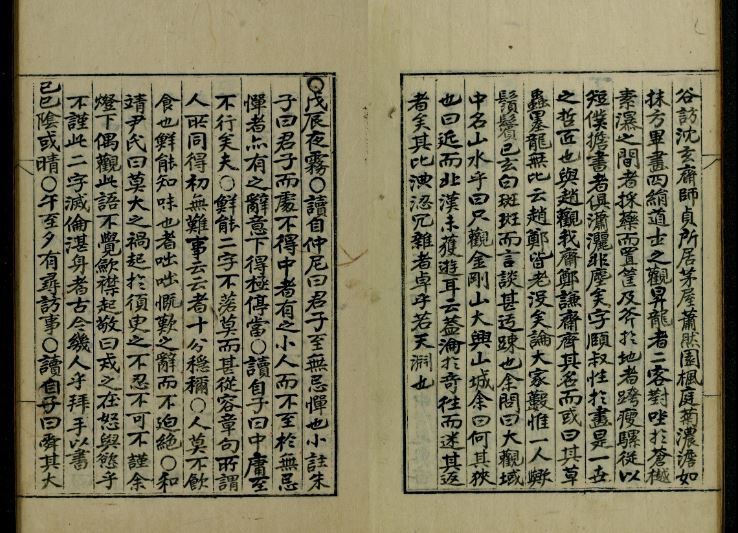 谷訪沈玄齋師貞所居茅屋蕭然園楓庭菊濃澹如
抹方畢畫四絹道士之觀昇龍者二客對坐於蒼樾
素瀑之間者採藥而置筐及斧於地者跨瘦騾從以
短僕擔書者俱瀟灑非塵矣字頤叔性於畫是一世
之哲匠也與趙觀我齋鄭謙齋齊其名而或曰其草
蟲墨龍無比云趙鄭皆老沒矣論大家數惟一人歟
鬚鬢已玄白斑斑而言談甚迃踈也余問曰大觀域
中名山水乎曰只觀金剛山大興山城余曰何其狹
也曰近而北漢未獲遊耳云蓋淪於奇往而迷其返
者矣其比洟涊冗雜者卓乎若天淵也
○戊辰夜霧○讀自仲尼曰君子至無忌憚也小註朱
子曰君子而處不得中者有之小人而不至於無忌
憚者亦有之辭意下得極停當○讀自子曰中庸至
不行矣夫○鮮能二字不落莫而甚從容章句所謂
人所同得初無難事云云者十分穩稱○人莫不飲
食也鮮能知味也者咄咄慨歎之辭而不迫絶○和
靖尹氏曰莫大之禍起於須臾之不忍不可不謹余
燈下偶觀此語不覺歛襟起敬曰戎之在怒與慾乎
不謹此二字滅倫湛身者古今幾人乎拜手以書
己巳陰或晴○午至夕有尋訪事○讀自子曰舜其大